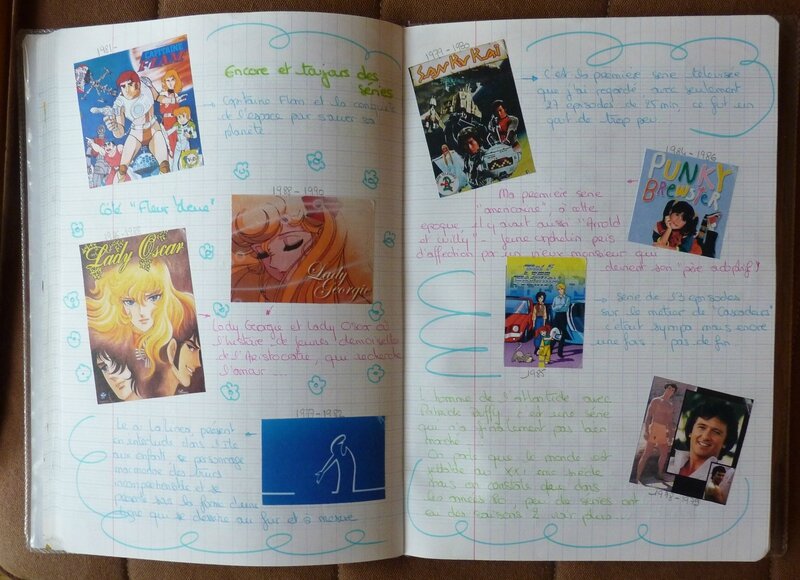 1981-
CAPITAINE
FLAM
Encore et toujours des
séries
Capitaine Flam et la conquête
de l'espace pour sauver sa
planète
Côté "Fleur bleue"
1988-1990
Lady Oscar
Lady
Georgie
Lady Georgie et Lady Oscar ou
l'histoire de jeunes demoiselles
de l'Aristocratie, qui recherche
l'amour ...
1977-1982
La Linea, présent
en interlude dans l'île
aux enfants, ce personnage
marmonne des trucs
incompréhensible et se
sous la forme d'une
ligne qui se dessine au fur et à mesure
1979-1980
SAN KU KAÏ
C'est la première série télévisée
que j'ai regardé avec seulement
27 épisodes de 25 min, ce fut un
goût de trop peu...
1984-1986
PUNKY
BREWSTER
Ma première série
"américaine" à cette
époque, il y avait aussi "Arnold
et Willy" - jeune orphelin pris
d'affection par un vieux monsieur qui
devient son "père adoptif"!
1985
Série de 13 épisodes
sur le métier de "Cascadeurs"
c'était sympa mais encore
une fois, pas de fin...
L'homme de l'atlantide avec
Patrick Duffy, c'est une série
qui n'a finalement pas bien
marché.
On parle que le monde est
jetable au XXI ème siècle
mais on constate que dans
les années 80 peu de séries ont
eu des saisons 2 voir plus...
1978-1979